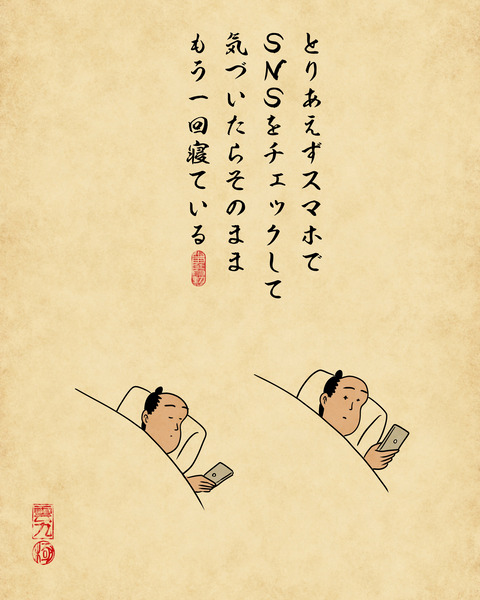 とりあえずスマホで
SNSをチェックして
気づいたらそのまま
もう一回寝ている